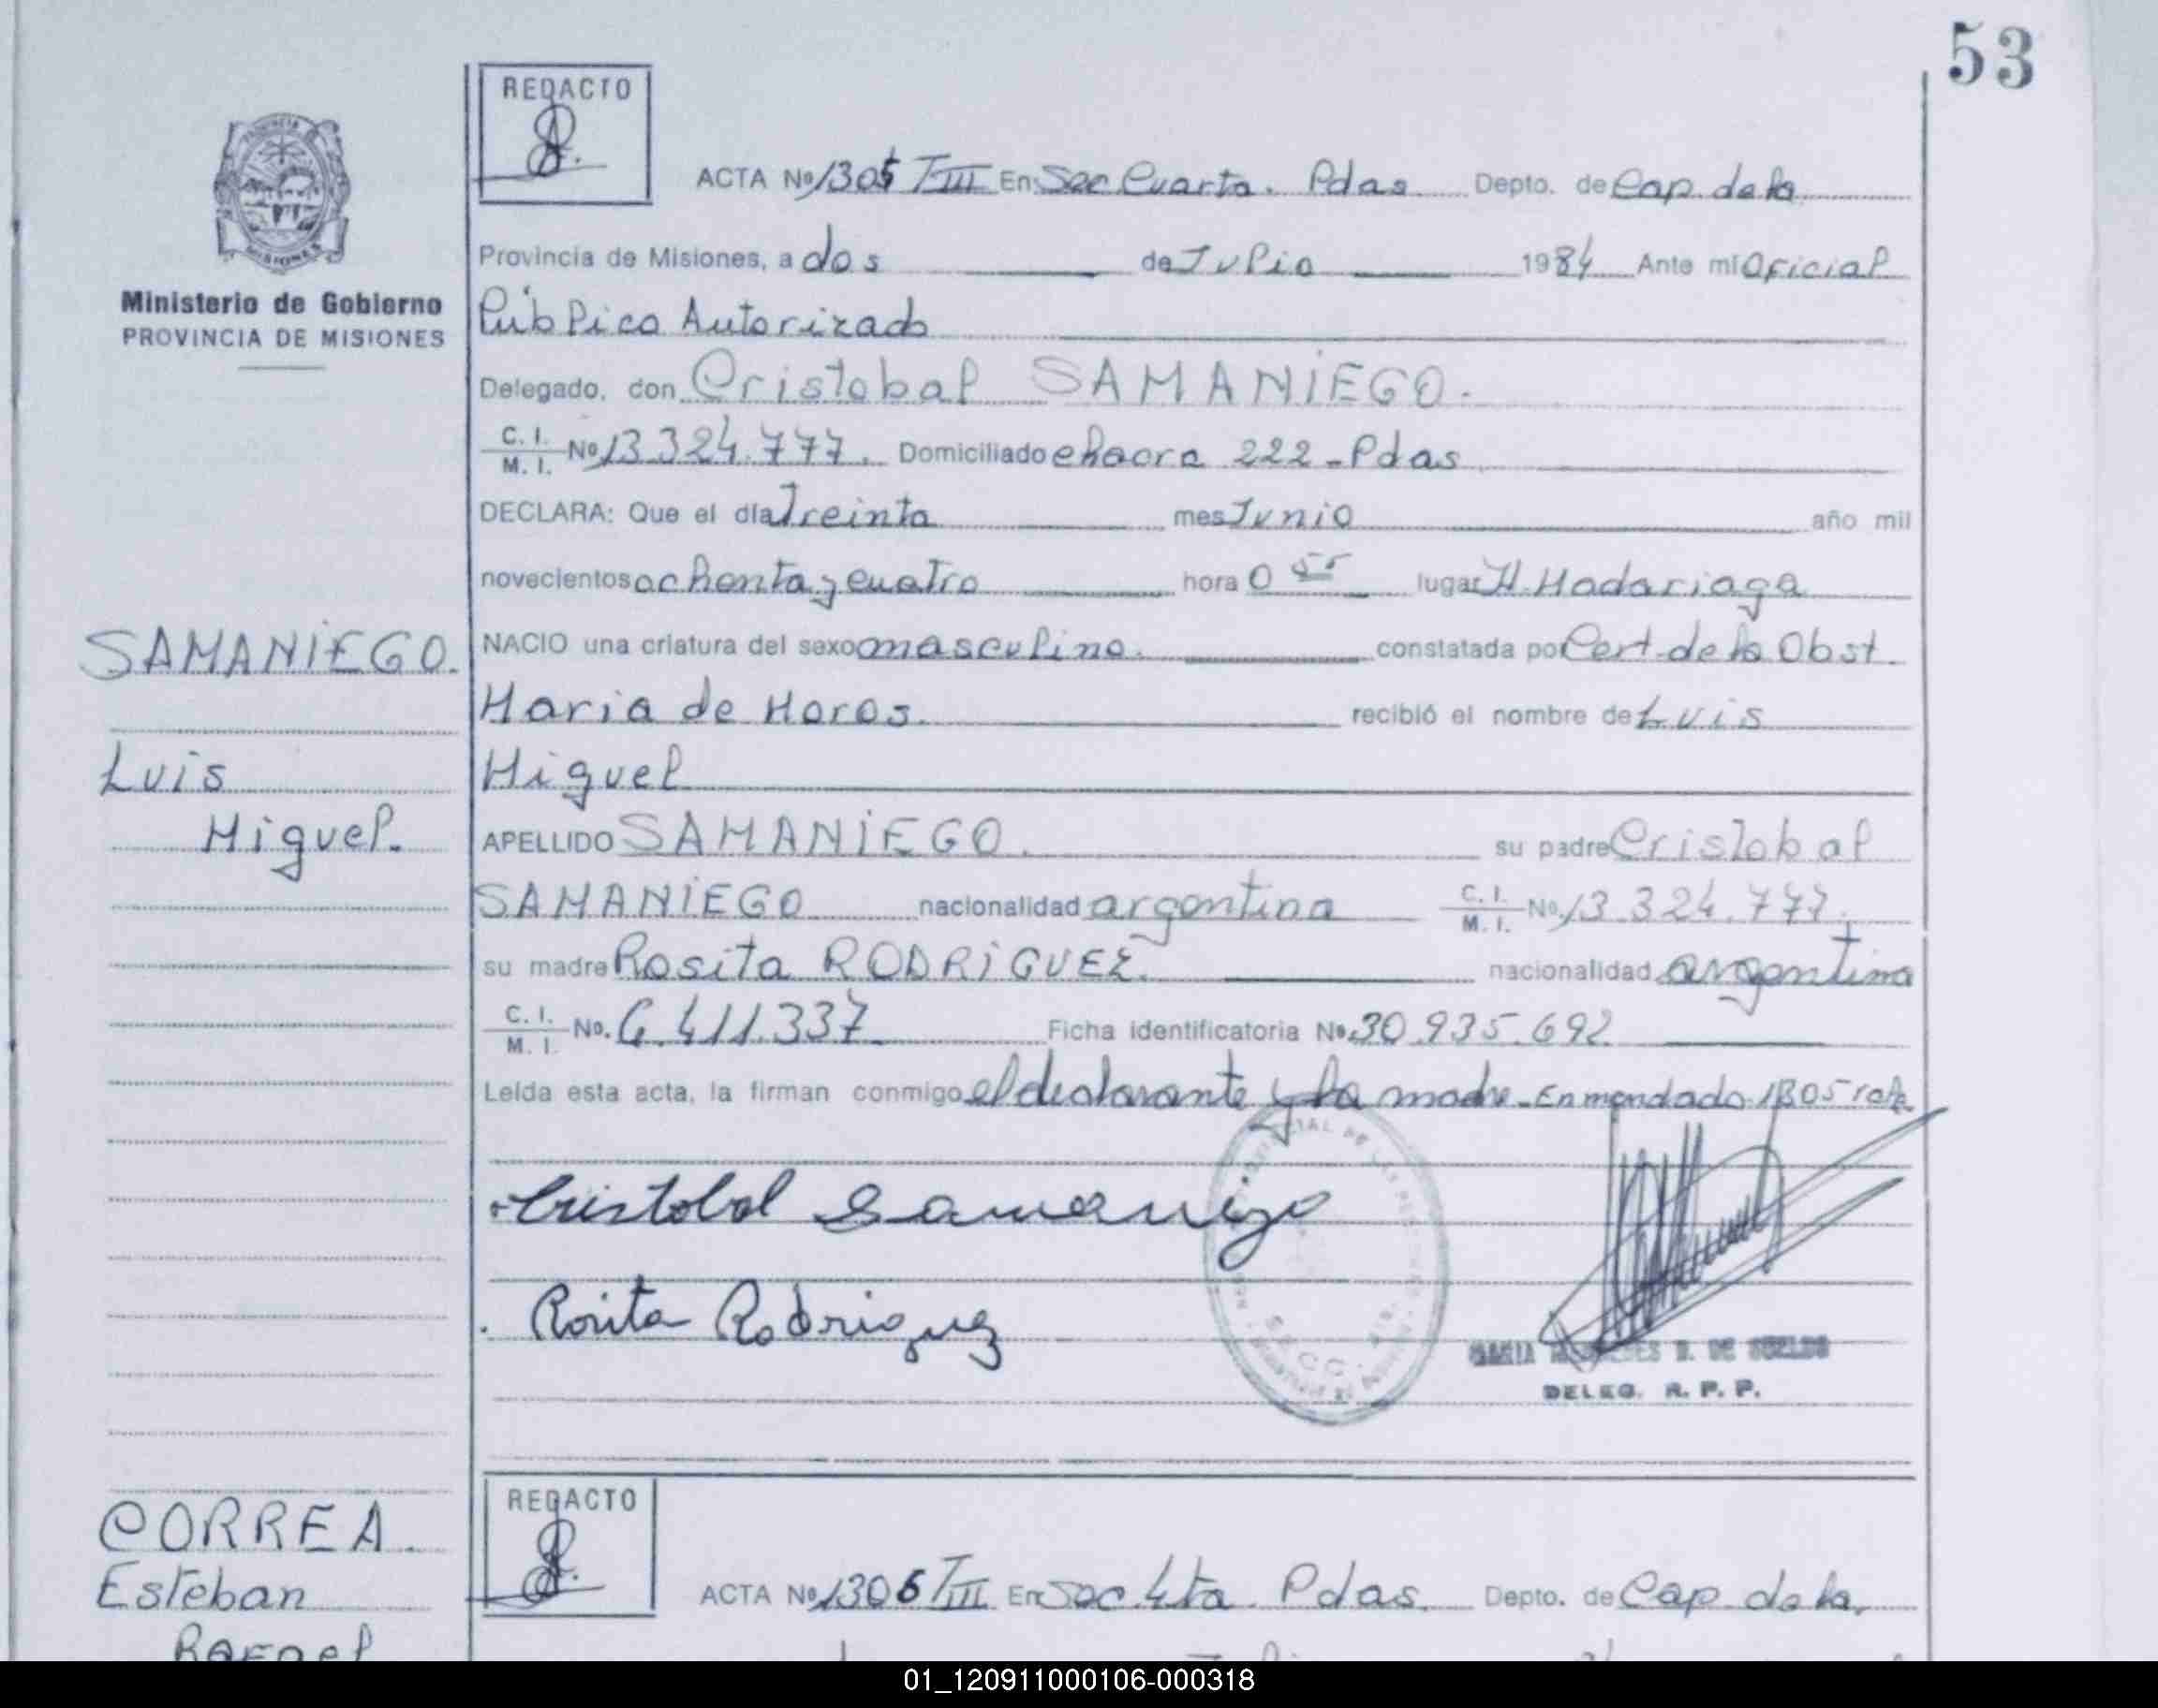 53
REDACTO
ACTA Nº 1305 T III En Sec Cuarta. Pdas Depto. de Cap. de la
Provincia de Misiones, a dos de Julio 1984 Ante mi Oficial
Público Autorizado
Delegado, don Cristobal SAMANIEGO.
C. I. M. I. Nº 13.324.777. Domiciliado chacra 222 - Pdas
DECLARA: Que el día Treinta mes Junio año mil
novecientos ochenta y cuatro hora 0 55 lugar H. Madariaga
NACIO una criatura del sexo masculino. constatada por Cert de la Obst.
Maria de Moros. recibió el nombre de Luis
Miguel
APELLIDO SAMANIEGO. su padre Cristobal
SAMANIEGO nacionalidad argentina C. I. M. I. Nº 13.324.777.
su madre Rosita RODRIGUEZ. nacionalidad argentina
C. I. M. I. No. 6.411.337 Ficha identificatoria Nº 30.935.692
Leída esta acta, la firman conmigo el declarante y la madre. Enmendado 1305 vale
Cristobal Samaniego
Rosita Rodriguez
DELEG. R. P. P.
Ministerio de Gobierno
PROVINCIA DE MISIONES
SAMANIEGO.
Luis
Miguel.
CORREA.
Esteban
Rafael
REDACTO
ACTA Nº 1306 T III En Sec 4ta Pdas. Depto. de Cap de la
01_120911000106-000318